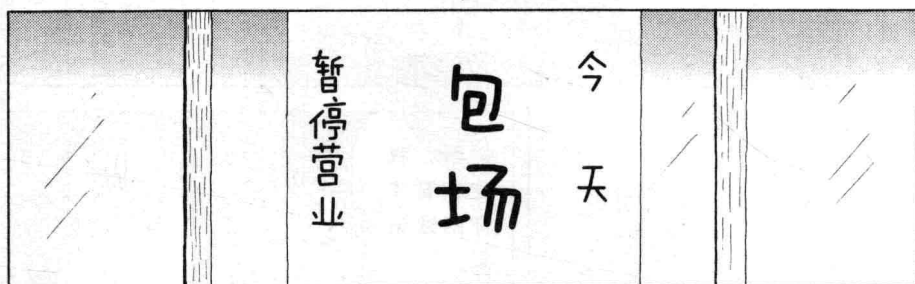 今天
包场
暂停营业